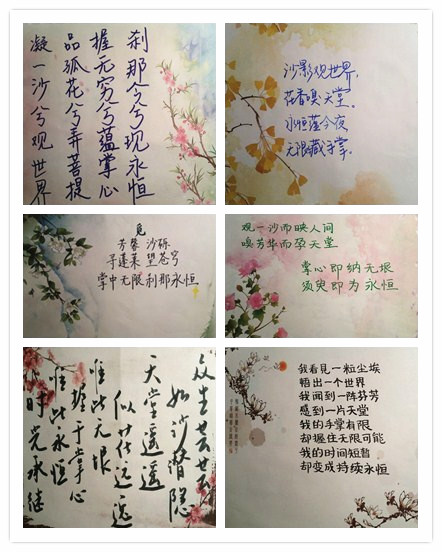 凝一沙兮观世界
品孤花兮弄菩提
握无穷兮蕴掌心
刹那今兮现永恒
沙影观世界,
花香嗅天堂。
永恒蕴今夜,
无限藏于掌。
觅
芳馨沙砾
寻蓬莱望苍穹
掌中无限刹那永恒
观一沙而映人间
嗅芳华而孕天堂
掌心即纳无垠
须臾即为永恒
众生芸芸
如沙瞥隐
天堂遥遥
似
惟此无垠
握于掌心
惟此永恒
时光承继
我看見一粒尘埃
悟出一个世界
我闻到一阵芬芳
感到一片天堂
我的手掌有限
却握住无限可能
我的时间短暂
却变成持续永恒